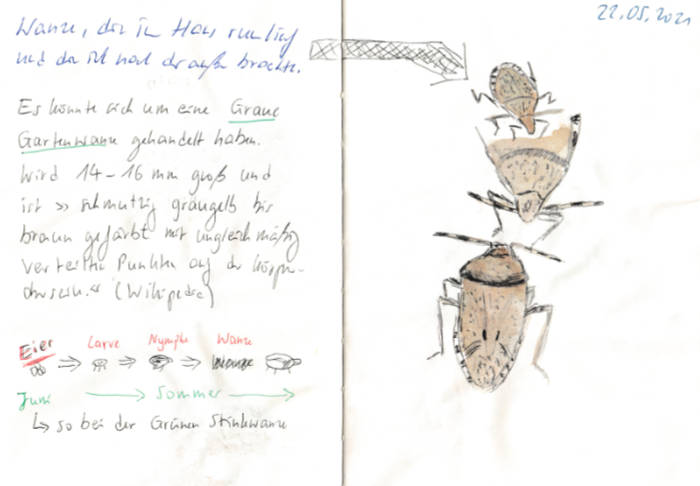 Wanze, die im Haus rumlief
und die ich nach draußen brachte.
Es könnte sich um eine Graue
Gartenwanze gehandelt haben.
Wird 14-16 mm groß und
ist » schmutzig graugelb bis
braun gefärbt mit ungleichmäßig
verteilten Punkten auf der Körper-
oberseite." (Wikipedia)
Eier Larve Nymphe Wanze
Juni Sommer
so bei der Grünen Stinkwanze
22.05.2021